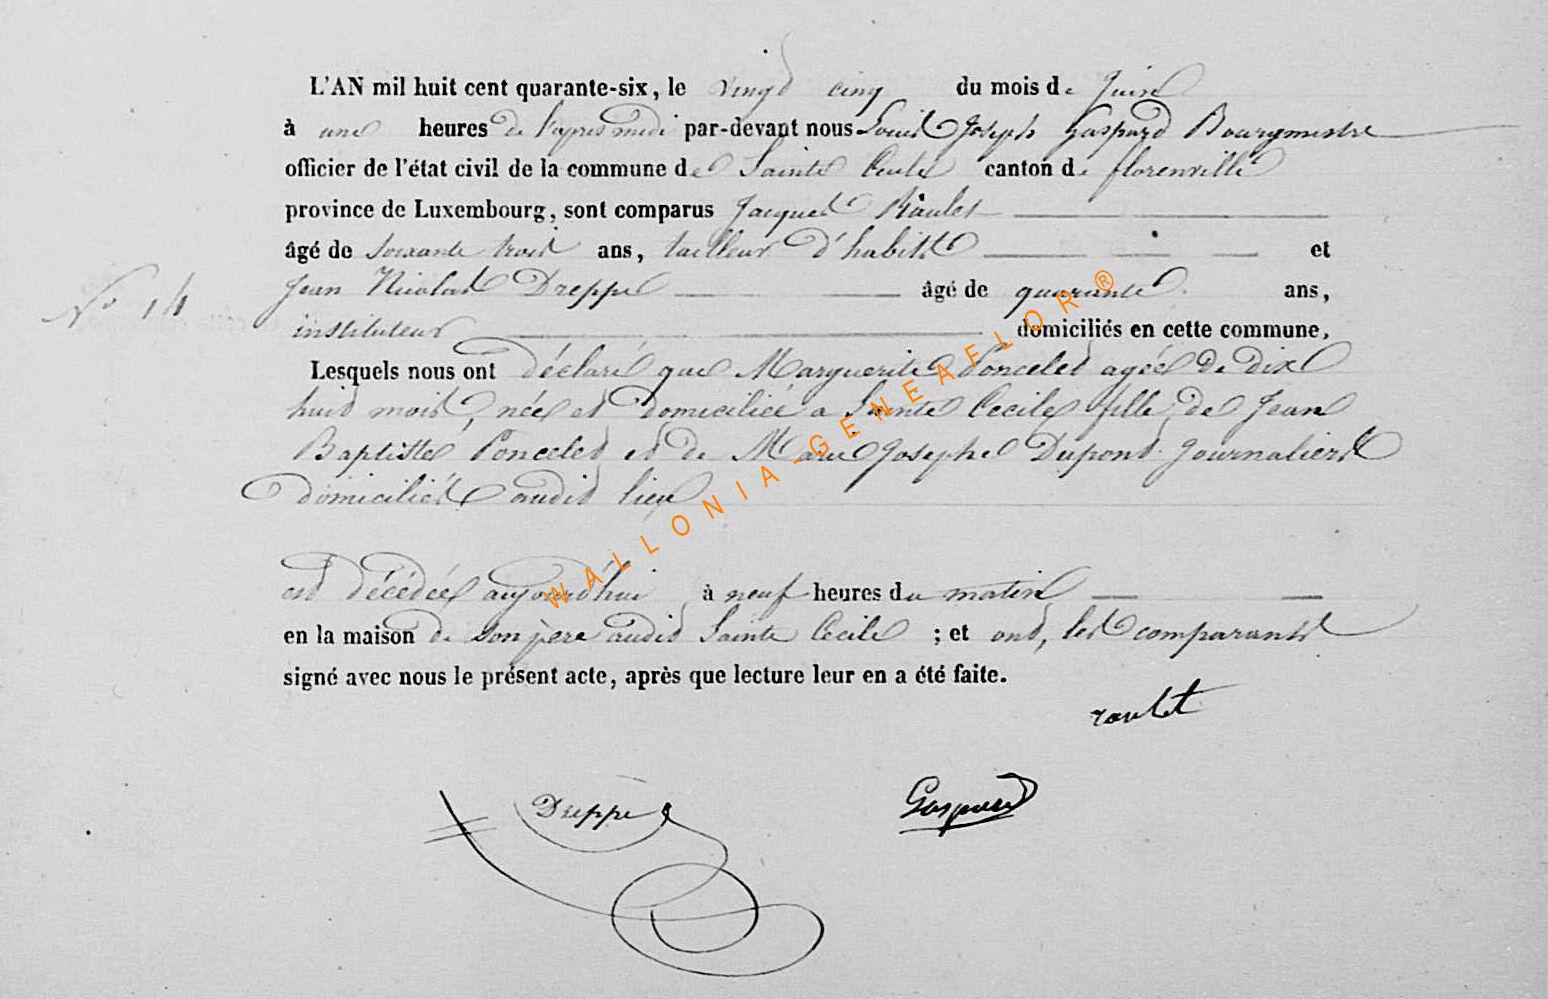 L'AN mil huit cent quarante-six, le vingt cinq du mois de Juin
à une heures de l'apres midi par-devant nous Louis Joseph Gaspard Bourgmestre
officier de l'état civil de la commune de Sainte Cecile canton de florenville
province de Luxembourg, sont comparus Jacques Raulet
âgé de soixante trois ans, tailleur d'habits et
N° 14
Jean Nicolas Dreppe âgé de quarante ans,
instituteur domiciliés en cette commune,
Lesquels nous ont déclaré que Marguerite Poncelet agée de dix
huit mois, née et domiciliée a Sainte Cecile fille de Jean
Baptiste Poncelet et de Marie Josephe Dupont Journaliers
domiciliés audit lieu
est décédée aujourd'hui à neuf heures du matin
en la maison de son père audit Sainte Cecile ; et ont, les comparants
signé avec nous le présent acte, après que lecture leur en a été faite.
raulet
Dreppe Gaspard
WALLONIA-GENEAFLOR ®